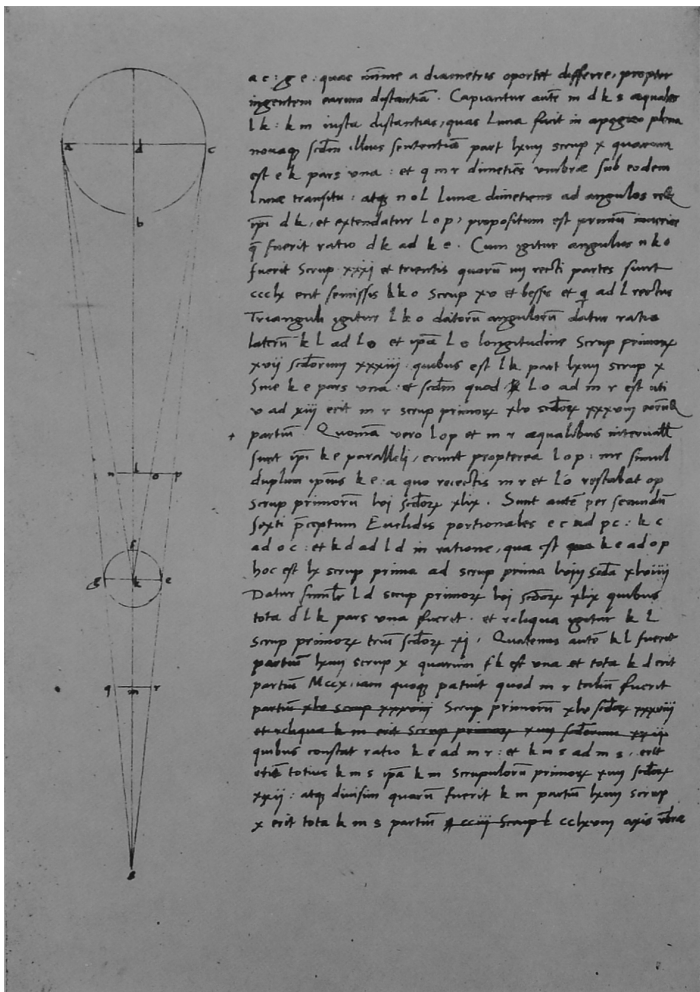 a c : g e : quas minime a diametris oportet differre, propter
ingentem earum distantiam . Capiantur autē m d k s æquales
l k : k m iusta distantias, quas Luna facit in apogæo plena
nouaqꝫ scđm illius sententiā part lxiiii scrup x quarum
est e k pars vna : et q m r dimetiēs vmbræ sub eodem
Lunæ transitu : atqꝫ n o l Lunæ dimetiens ad angulos
ipi d k, et extendatur l o p, propositum est primū
q̄ fuerit ratio d k ad k e . Cum igitur angulus n k o
fuerit Scrup xxxi et trientis quorū iiii recti partes sunt
ccclx erit semissis l k o Scrup xv et bessis et q ad l rectus
Trianguli igitur l k o datorū angulorū datur ratio
laterū k l ad l o et ipā l o longitudine Scrup primorꝝ
xvii scđorum xxxiii quibus est l k part lxiiii scrup x
Siue k e pars vna : et scđm quod l o ad m r est uti
v ad xiii erit m r scrup primorꝝ xlv scđorꝝ xxxviii
partiū Quoniā vero l o p et m r æqualibus interuall
sunt ipi k e paralleli, erunt propterea l o p : m r simul
duplum ipius k e : a quo reiectis m r et l o restabat o p
Scrup primorū lvi scđorꝝ xlix . Sunt autē per secundū
sexti p̄ceptum Euclidis portionales e c ad p c : k c
ad o c : et k d ad l d in ratione, qua est k e ad o p
hoc est lx scrup prima ad scrup prima lvi scđa xlviiii
Datur simīlr l d scrup primorꝝ lvi scđorꝝ xlix quibus
tota d l k pars vna fuerit . et reliqua igitur k l
Scrup primorꝝ triū scđorꝝ xi , Quatenus autē k l fuerit
partium lxiiii scrup x quarum f k est vna et tota k d erit
partiū Mccx, iam quoqꝫ patuit quod m r taliū fuerit
partiū xlv scrup xxxviii Scrup primorū xlv scđorꝝ xxxviii
et reliqua k m erit Scrup primorꝝ xiii scđorum xxii
quibus constat ratio k e ad m r : et k m s ad m s , erit
etiā totius k m s ipā k m Scrupulorū primorꝝ xiiii scđorꝝ
xxii : atqꝫ diuisim quarū fuerit k m partiū lxiiii scrup
x erit tota k m s partiū cclxviii axis vbræ
a d c
b
n l o p
f
g k e
q m r
s